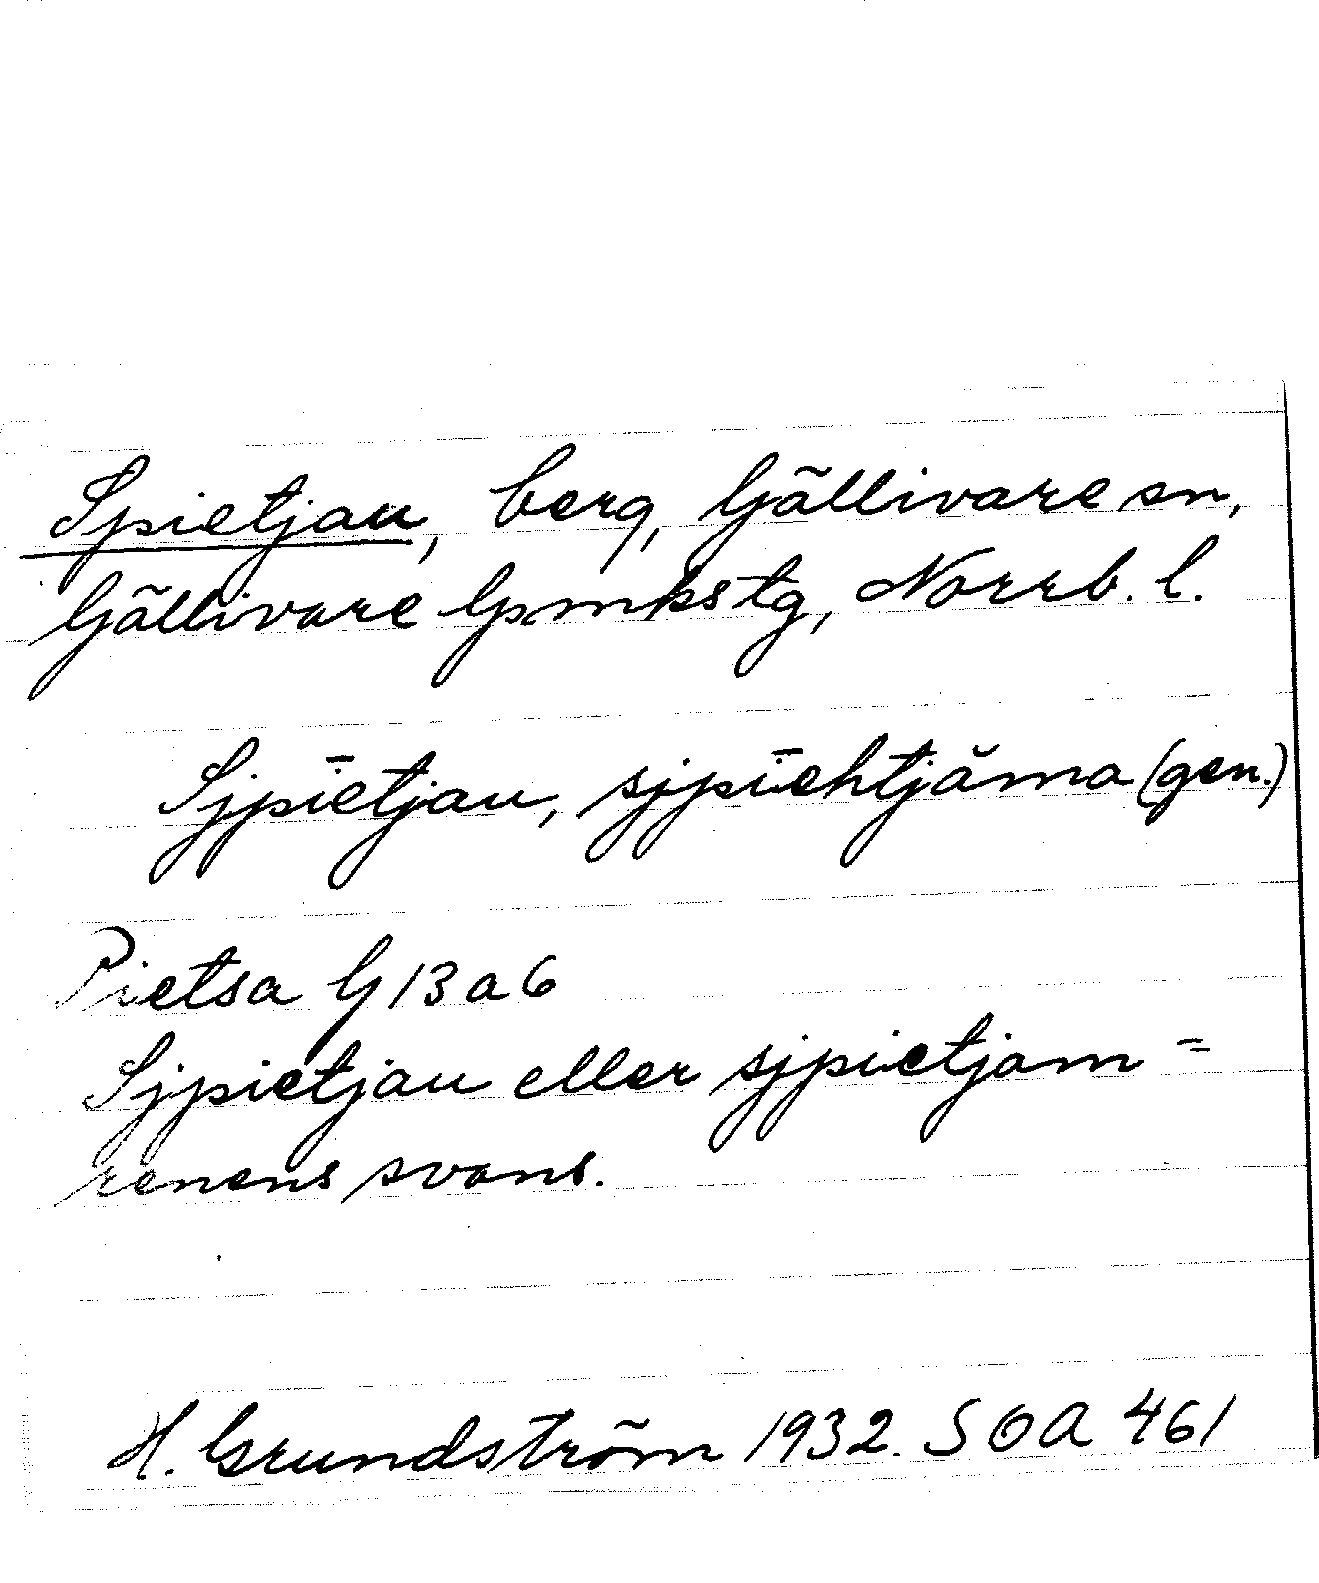 Spietjau, berg, Gällivare sn,
Gällivare lpmkstg, Norrb. l.
Sjpīetjau, sjpīehtjăma (gen.)
Pietsa G 13 a 6
Sjpietjau eller sjpietjam =
renens svans.
H. Grundström 1932. SOA 461